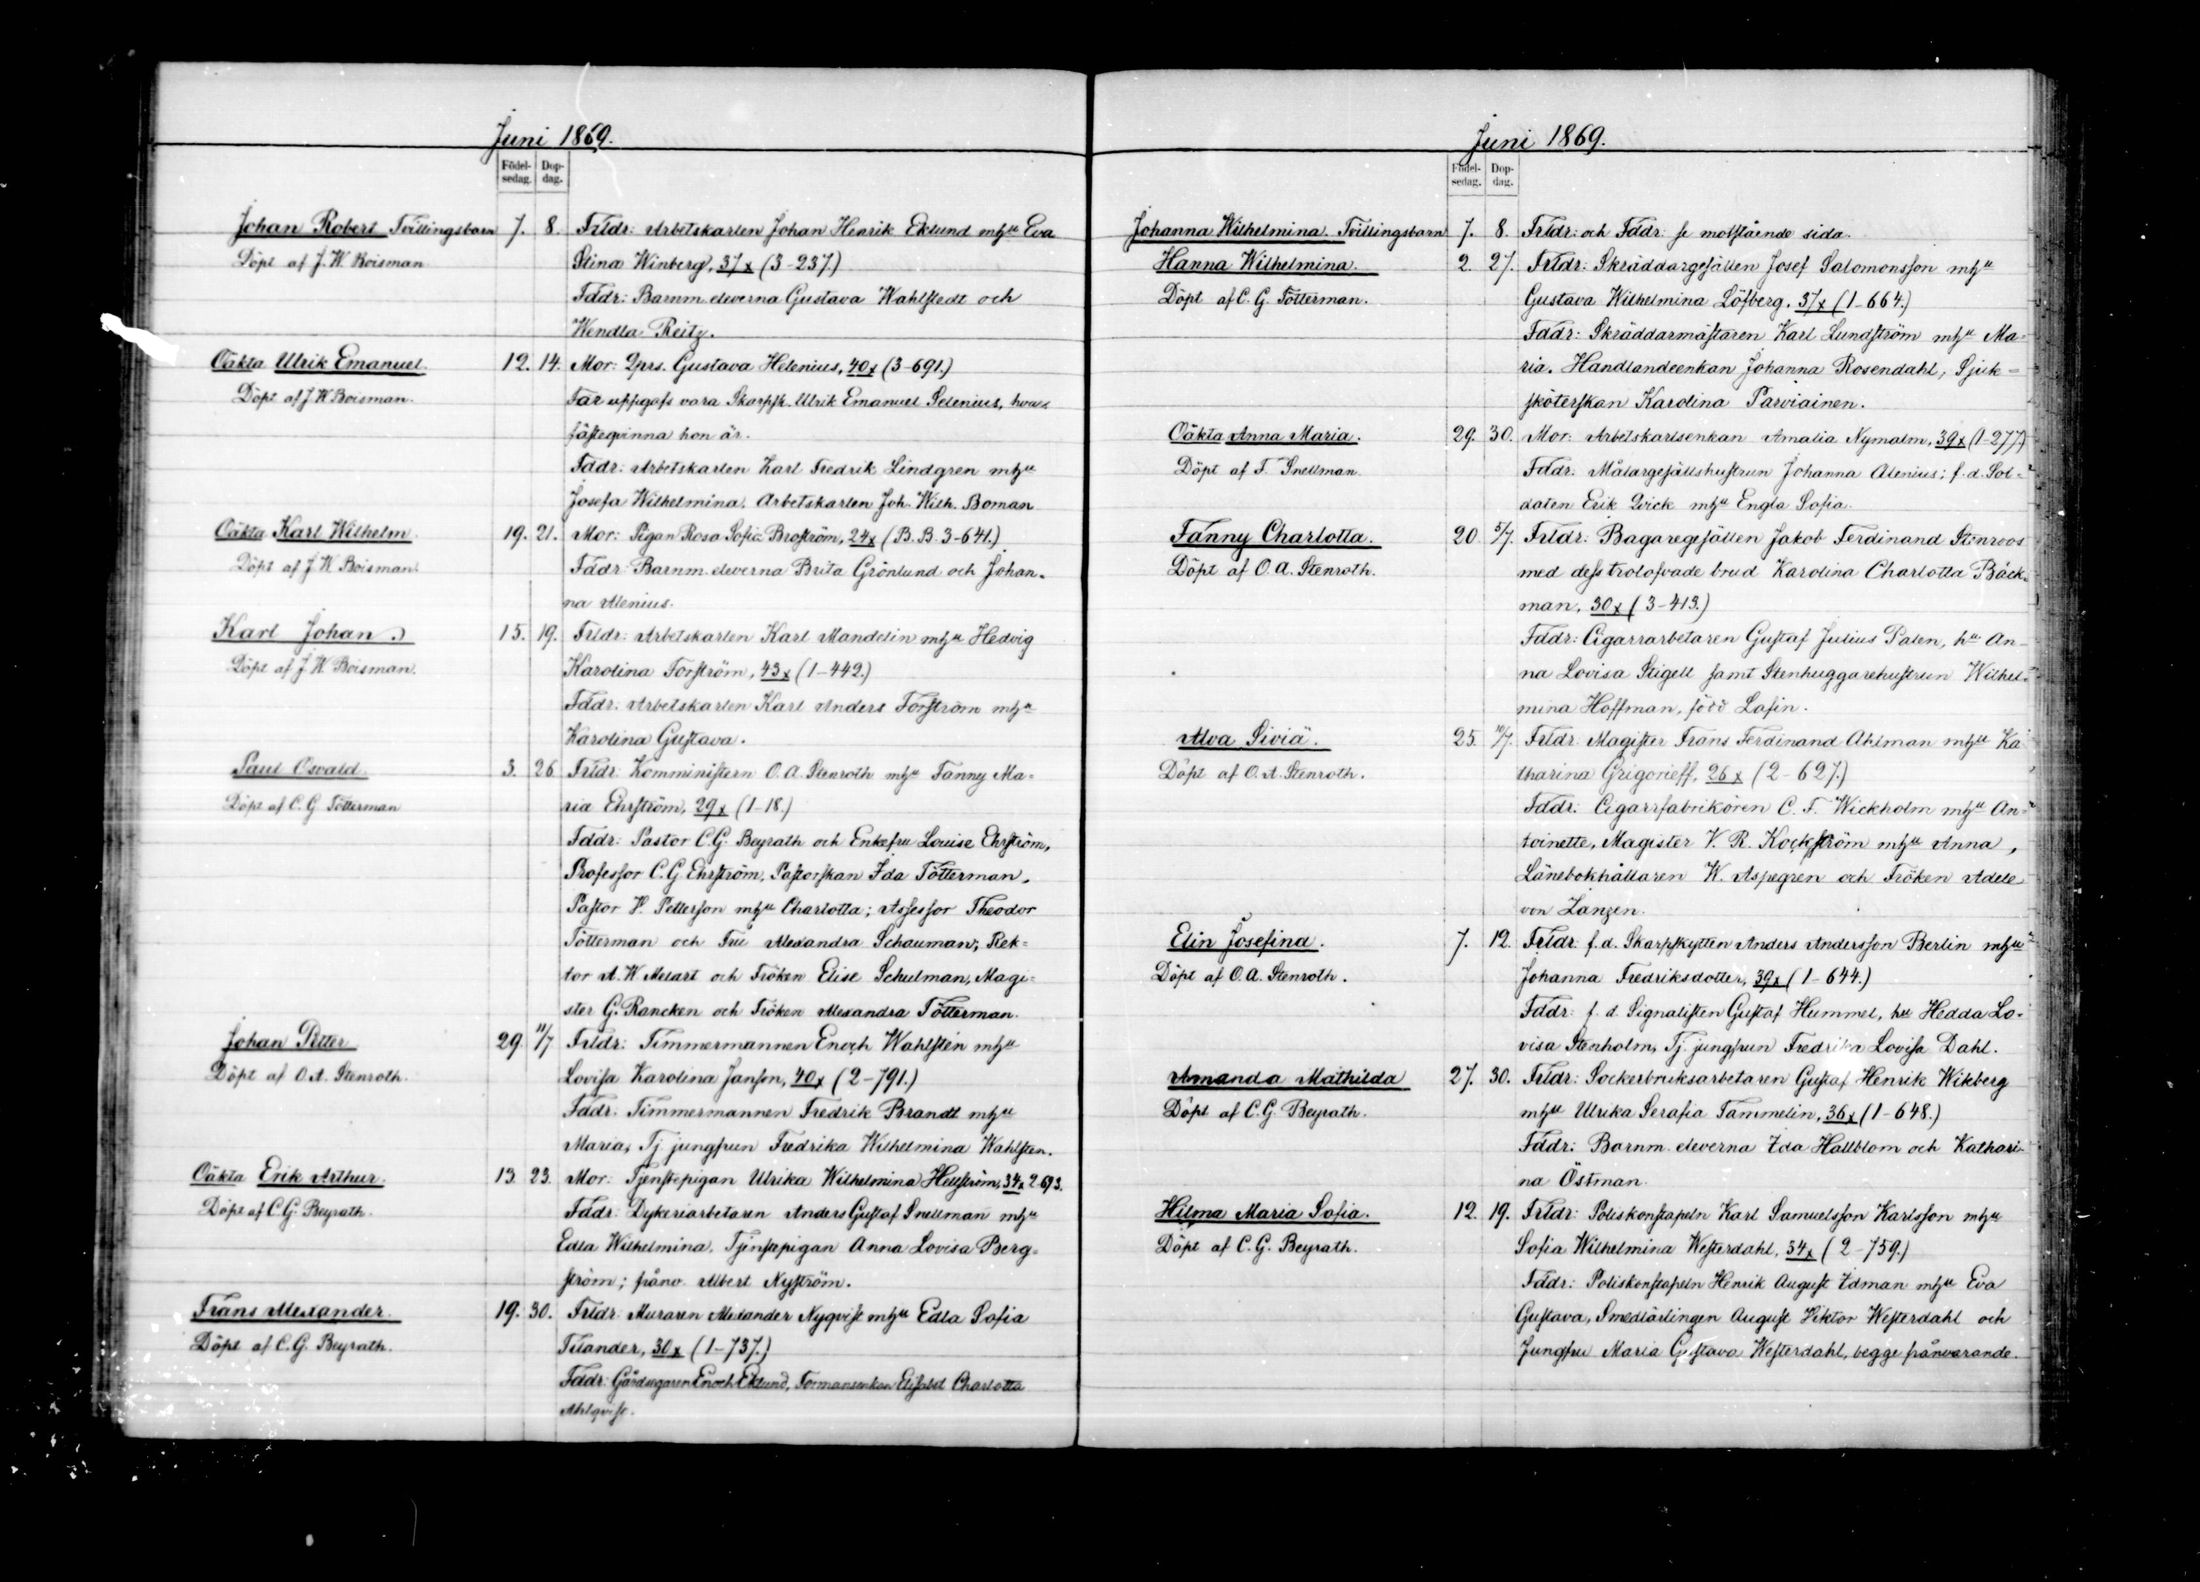 Juni 1869.
Födel-sedag. Dop-dag.
Johan Robert Tvillingsbarn 7. 8. Frldr: Arbetskarlen Johan Henrik Eklund mhu Eva
Döpt af J. W. Boisman Stina Winberg, 37 x (3-237.)
Fddr: Barnm. eleverna Gustava Wahlstedt och
Wendla Reitz.
Oäkta Ulrik Emanuel. 12. 14. Mor: Qprs. Gustava Helenius, 40 x (3-691.)
Döpt af J. W. Boisman. Far uppgafs vara Skarpsk. Ulrik Emanuel Selenius, hvars
fästeqvinna hon är.
Fddr: Arbetskarlen Karl Fredrik Lindgren mhu
Josefa Wilhelmina, Arbetskarlen Joh. Wilh. Boman
Oäkta Karl Wilhelm 19. 21. Mor: Pigan Rosa Sofia Broström, 24 x (B. B. 3-641.)
Döpt af J. W. Boisman. Fddr: Barnm. eleverna Brita Grönlund och Johan-
na Alenius.
Karl Johan. 15. 19. Frldr: Arbetskarlen Karl Mandelin mhu Hedvig
Döpt af J. W. Boisman. Karolina Forström, 43 x (1-442.)
Fddr: Arbetskarlen Karl Anders Forström mhu
Karolina Gustava.
Paul Osvald. 3. 26 Frldr: Komministern O. A. Stenroth mhu Fanny Ma-
Döpt af C. G. Tötterman ria Ehrström, 29 x (1-18.)
Fddr: Pastor C. G. Beyrath och Enkefru Louise Ehrström,
Professor C. G. Ehrström, Pastorskan Ida Tötterman,
Pastor P. Petterson mhu Charlotta; Assessor Theodor
Tötterman och Fru Alexandra Schauman; Rek-
tor A. W. Melart och Fröken Elise Schulman, Magi-
ster G. Rancken och Fröken Alexandra Tötterman.
Johan Petter 29. 11/7 Frldr: Timmermannen Enoch Wahlsten mhu
Döpt af O. A. Stenroth. Lovisa Karolina Janson, 40 x (2-791.)
Fddr: Timmermannen Fredrik Brandt mhu
Maria, Tj. jungfrun Fredrika Wilhelmina Wahlsten.
Oäkta Erik Arthur. 13. 23. Mor: Tjenstepigan Ulrika Wilhelmina Hellström, 34 x 2-693.
Döpt af C. G. Beyrath. Fddr: Dykeriarbetaren Anders Gustaf Snellman mhu
Edla Wilhelmina, Tjenstepigan Anna Lovisa Berg-
ström; frånv. Albert Nyström.
Frans Alexander. 19. 30. Frldr: Muraren Alexander Nyqvist mhu Edla Sofia
Döpt af C. G. Beyrath. Tilander, 30 x (1-737.)
Fddr: Gårdsegaren Enoch Eklund, Formansenkan Elisabet Charlotta
Ahlqvist.
Juni 1869.
Födel-sedag. Dop-dag.
Johanna Wilhelmina. Tvillingsbarn 7. 8. Frldr: och Fddr: se motstående sida.
Hanna Wilhelmina. 2. 27. Frldr: Skräddargesällen Josef Salomonsson mhu
Döpt af C. G. Tötterman. Gustava Wilhelmina Löfberg, 37 x (1-664.)
Fddr: Skräddarmästaren Karl Lundström mhu Ma-
ria. Handlandeenkan Johanna Rosendahl, Sjuk-
sköterskan Karolina Parviainen.
Oäkta Anna Maria. 29. 30. Mor: Arbetskarlsenkan Amalia Nymalm, 39 x (1-277.)
Döpt af F. Snellman. Fddr: Målargesällshustrun Johanna Alenius; f. d. Sol-
daten Erik Qvick mhu Engla Sofia.
Fanny Charlotta. 20. 5/7. Frldr: Bagaregesällen Jakob Ferdinand Stenroos
Döpt af O. A. Stenroth. med dess trolofvade brud Karolina Charlotta Bäck-
man, 30 x (3-413.)
Fddr: Cigarrarbetaren Gustaf Julius Palen, hu An-
na Lovisa Stigell samt Stenhuggarehustrun Wilhel-
mina Hoffman, född Lafin.
Alva Siviä. 25. 10/7. Frldr: Magister Frans Ferdinand Ahlman mhu Ka
Döpt af O. A. Stenroth. tharina Grigorieff, 26 x (2-627.)
Fddr: Cigarrfabrikören C. F. Wickholm mhu An-
toinette, Magister V. R. Kockström mhu Anna,
Länebokhållaren W. Aspegren och Fröken Adele
von Zanzen.
Elin Josefina. 7. 12. Frldr: f. d. Skarpskytten Anders Andersson Berlin mhu
Döpt af O. A. Stenroth. Johanna Fredriksdotter, 39 x (1-644.)
Fddr: f. d. Signalisten Gustaf Hummel, hu Hedda Lo-
visa Stenholm, Tj. jungfrun Fredrika Lovisa Dahl.
Amanda Mathilda 27. 30. Frldr: Sockerbruksarbetaren Gustaf Henrik Wikberg
Döpt af C. G. Beyrath. mhu Ulrika Serafia Tammelin, 36 x (1-648.)
Fddr: Barnm. eleverna Ida Hallblom och Kathari-
na Östman.
Hilma Maria Sofia. 12. 19. Frldr: Poliskonstapeln Karl Samuelsson Karlsson mhu
Döpt af C. G. Beyrath. Sofia Wilhelmina Westerdahl, 34 x (2-759.)
Fddr: Poliskonstapeln Henrik August Idman mhu Eva
Gustava, Smedlärlingen August Hektor Westerdahl och
Jungfru Maria Gustava Westerdahl, begge frånvarande.